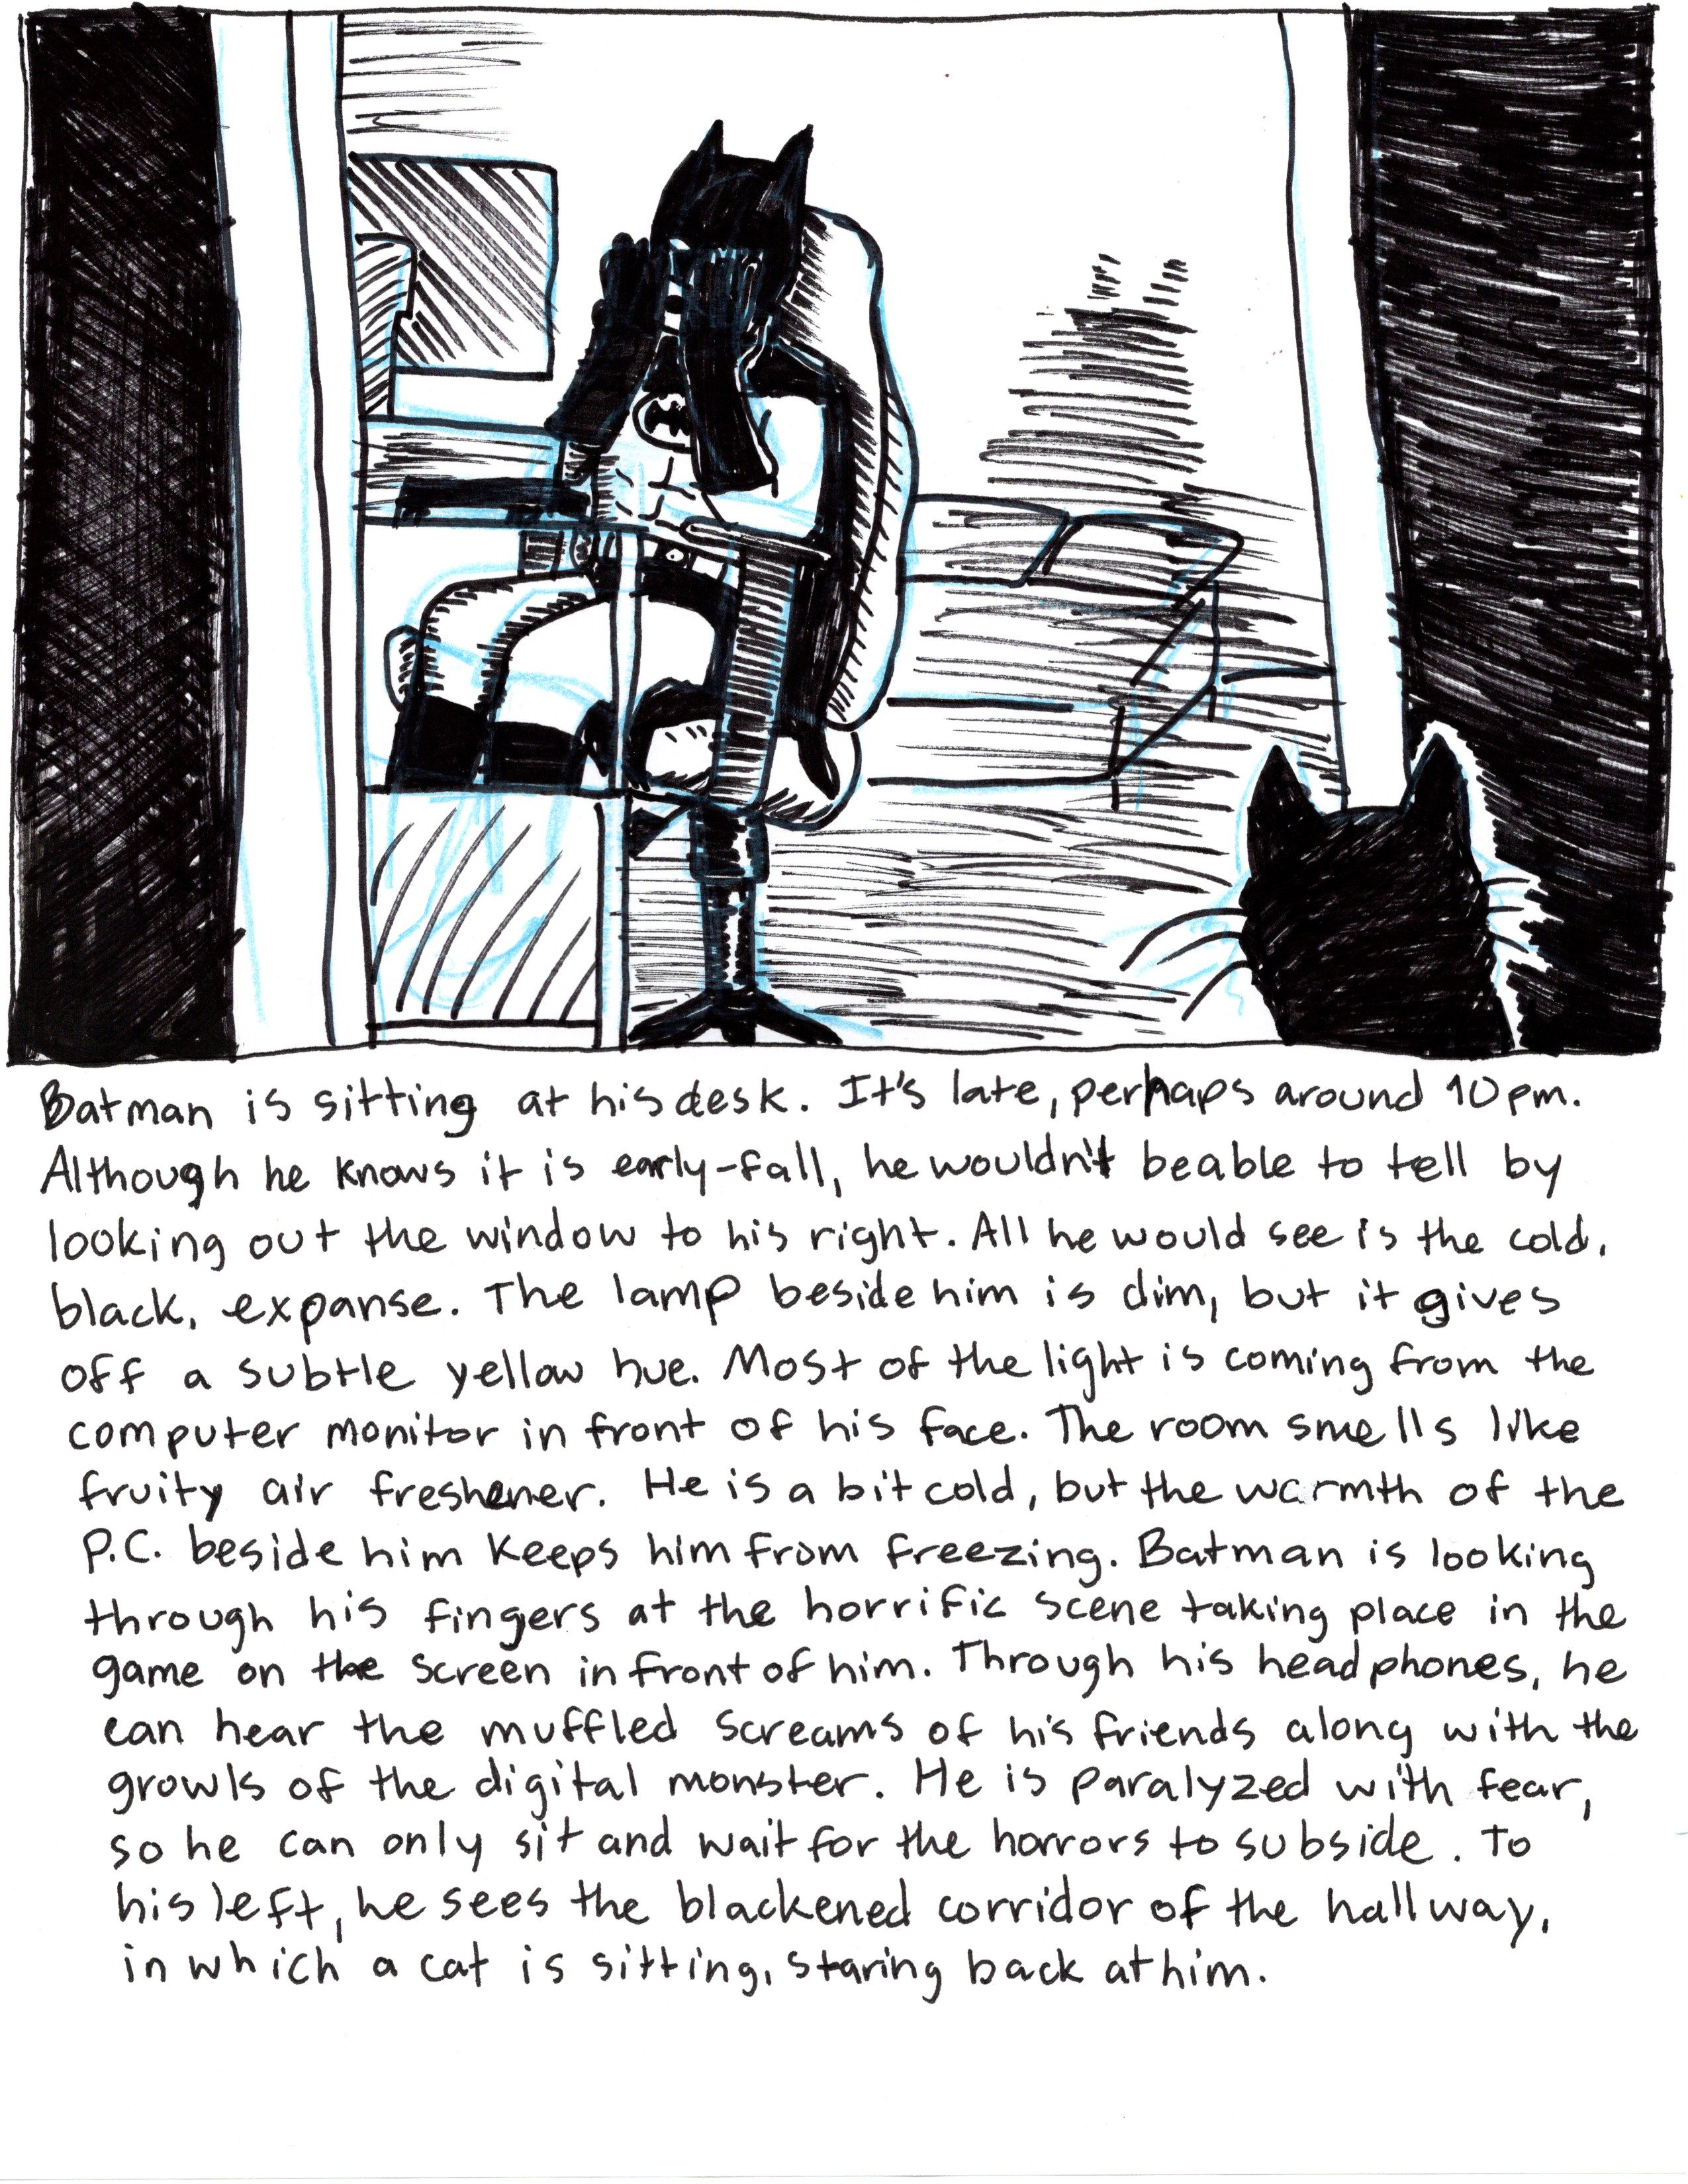 Batman is sitting at his desk. It's late, perhaps around 10pm.
Although he knows it is early-fall, he wouldn't beable to tell by
looking out the window to his right. All he would see is the cold,
black, expanse. The lamp beside him is dim, but it gives
off a subtle yellow hue. Most of the light is coming from the
computer monitor in front of his face. The room smells like
fruity air freshener. He is a bit cold, but the warmth of the
P.C. beside him keeps him from freezing. Batman is looking
through his fingers at the horrific scene taking place in the
game on the screen in front of him. Through his headphones, he
can hear the muffled screams of his friends along with the
growls of the digital monster. He is paralyzed with fear,
so he can only sit and wait for the horrors to subside. To
his left, he sees the blackened corridor of the hallway,
in which a cat is sitting, staring back at him.